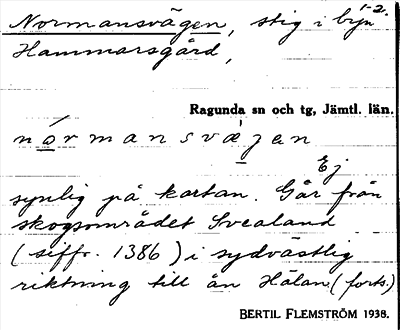 1-2.
Normansvägen, stig i byn
Hammarsgård,
Ragunda sn och tg, Jämtl. län.
nórmansvæjen
Ej
synlig på kartan. Går från
skogsområdet Svealand
(siffr. 1386) i sydvästlig
riktning till ån Hålan (forts.)
BERTIL FLEMSTRÖM 1938.